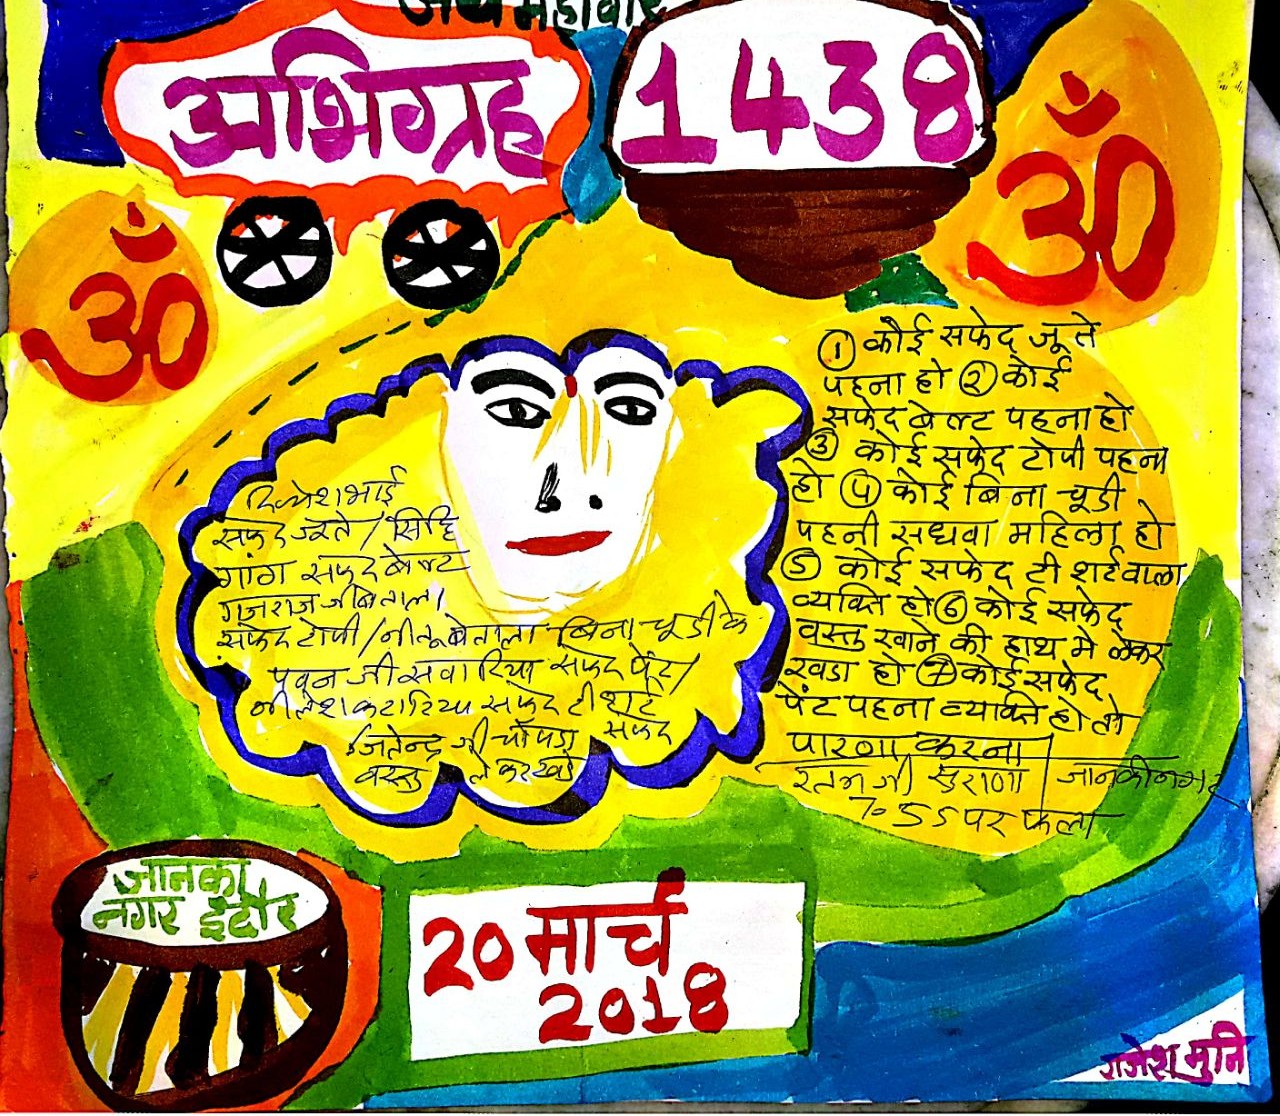 जय महावीर
अभिग्रह
1438
ॐ
ॐ
① कोई सफेद जूते
पहना हो ② कोई
सफेद बेल्ट पहना हो
③ कोई सफेद टोपी पहना
हो ④ कोई बिना चूडी
पहनी सधवा महिला हो
⑤ कोई सफेद टी शर्टवाला
व्यक्ति हो ⑥ कोई सफेद
वस्तु खाने की हाथ मे लेकर
खडा हो ⑦ कोई सफेद
पेंट पहना व्यक्ति हो तो
पारणा करना
रतनजी सुराणा / जानकीनगर
7.55 पर फला
दिव्येशभाई
सफेद जूते / सिद्धि
गांग सफेद बेल्ट
गजराजजी बेताला
सफेद टोपी / नीतू बेताला बिना चूडी के
पवन जी सवारिया सफेद पेंट /
नीलेश कटारिया सफेद टीशर्ट
जितेन्द्र जी चौपडा सफेद
वस्तु लेकर खडे
जानकी
नगर इंदौर
20 मार्च
2018
राजेश मुनि